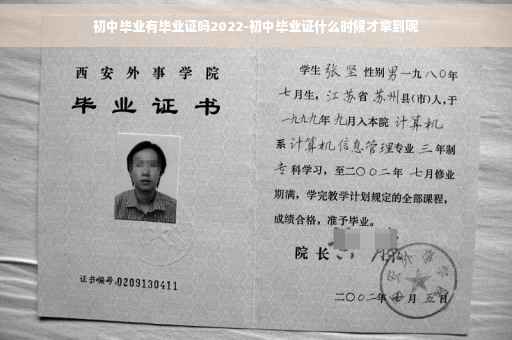 初中毕业有毕业证吗2022-初中毕业证什么时候才拿到呢
西安外事学院
毕业证书
证书编号:0209130411
学生 张坚 性别 男 一九八〇年
七月生，江苏省 苏州 县(市)人，于
一九九九年 九月入本院 计算机
系 计算机信息管理 专业 三 年制
专科学习，至二〇〇二年 七月修业
期满，学完教学计划规定的全部课程，
成绩合格，准予毕业。
院长
二〇〇二年 月 五日